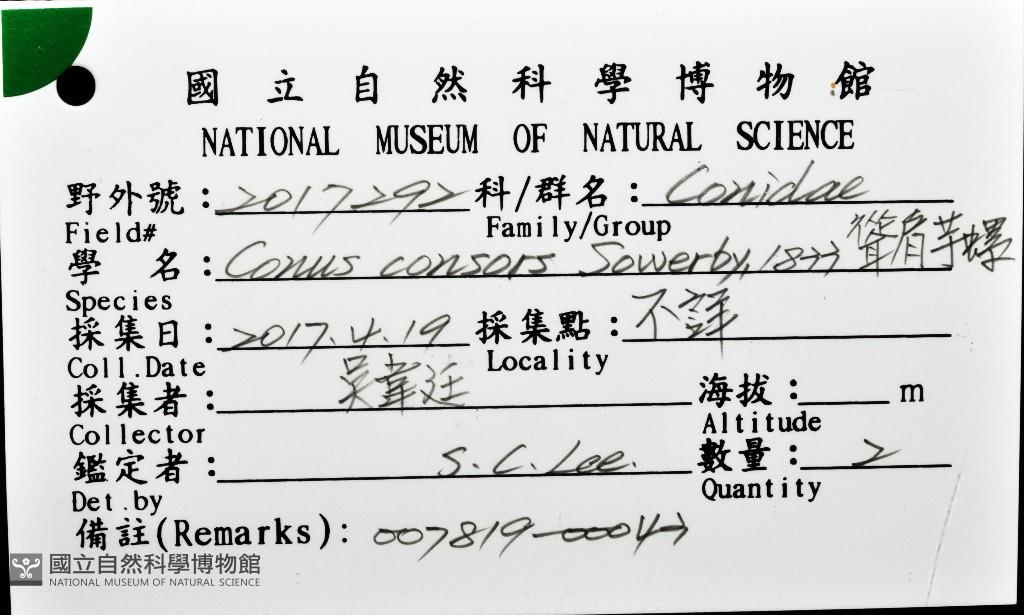 國立自然科學博物館
NATIONAL MUSEUM OF NATURAL SCIENCE
野外號：2017292 科/群名：Conidae
Field# Family/Group
聳肩芋螺
學名：Conus consors Sowerby, 1833
Species
採集日：2017.4.19 採集點：不詳
Coll.Date Locality
採集者：吳韋廷 海拔： m
Collector Altitude
鑑定者：S.C.Lee. 數量：2
Det.by Quantity
備註(Remarks): 007819-00043
國立自然科學博物館
NATIONAL MUSEUM OF NATURAL SCIENCE